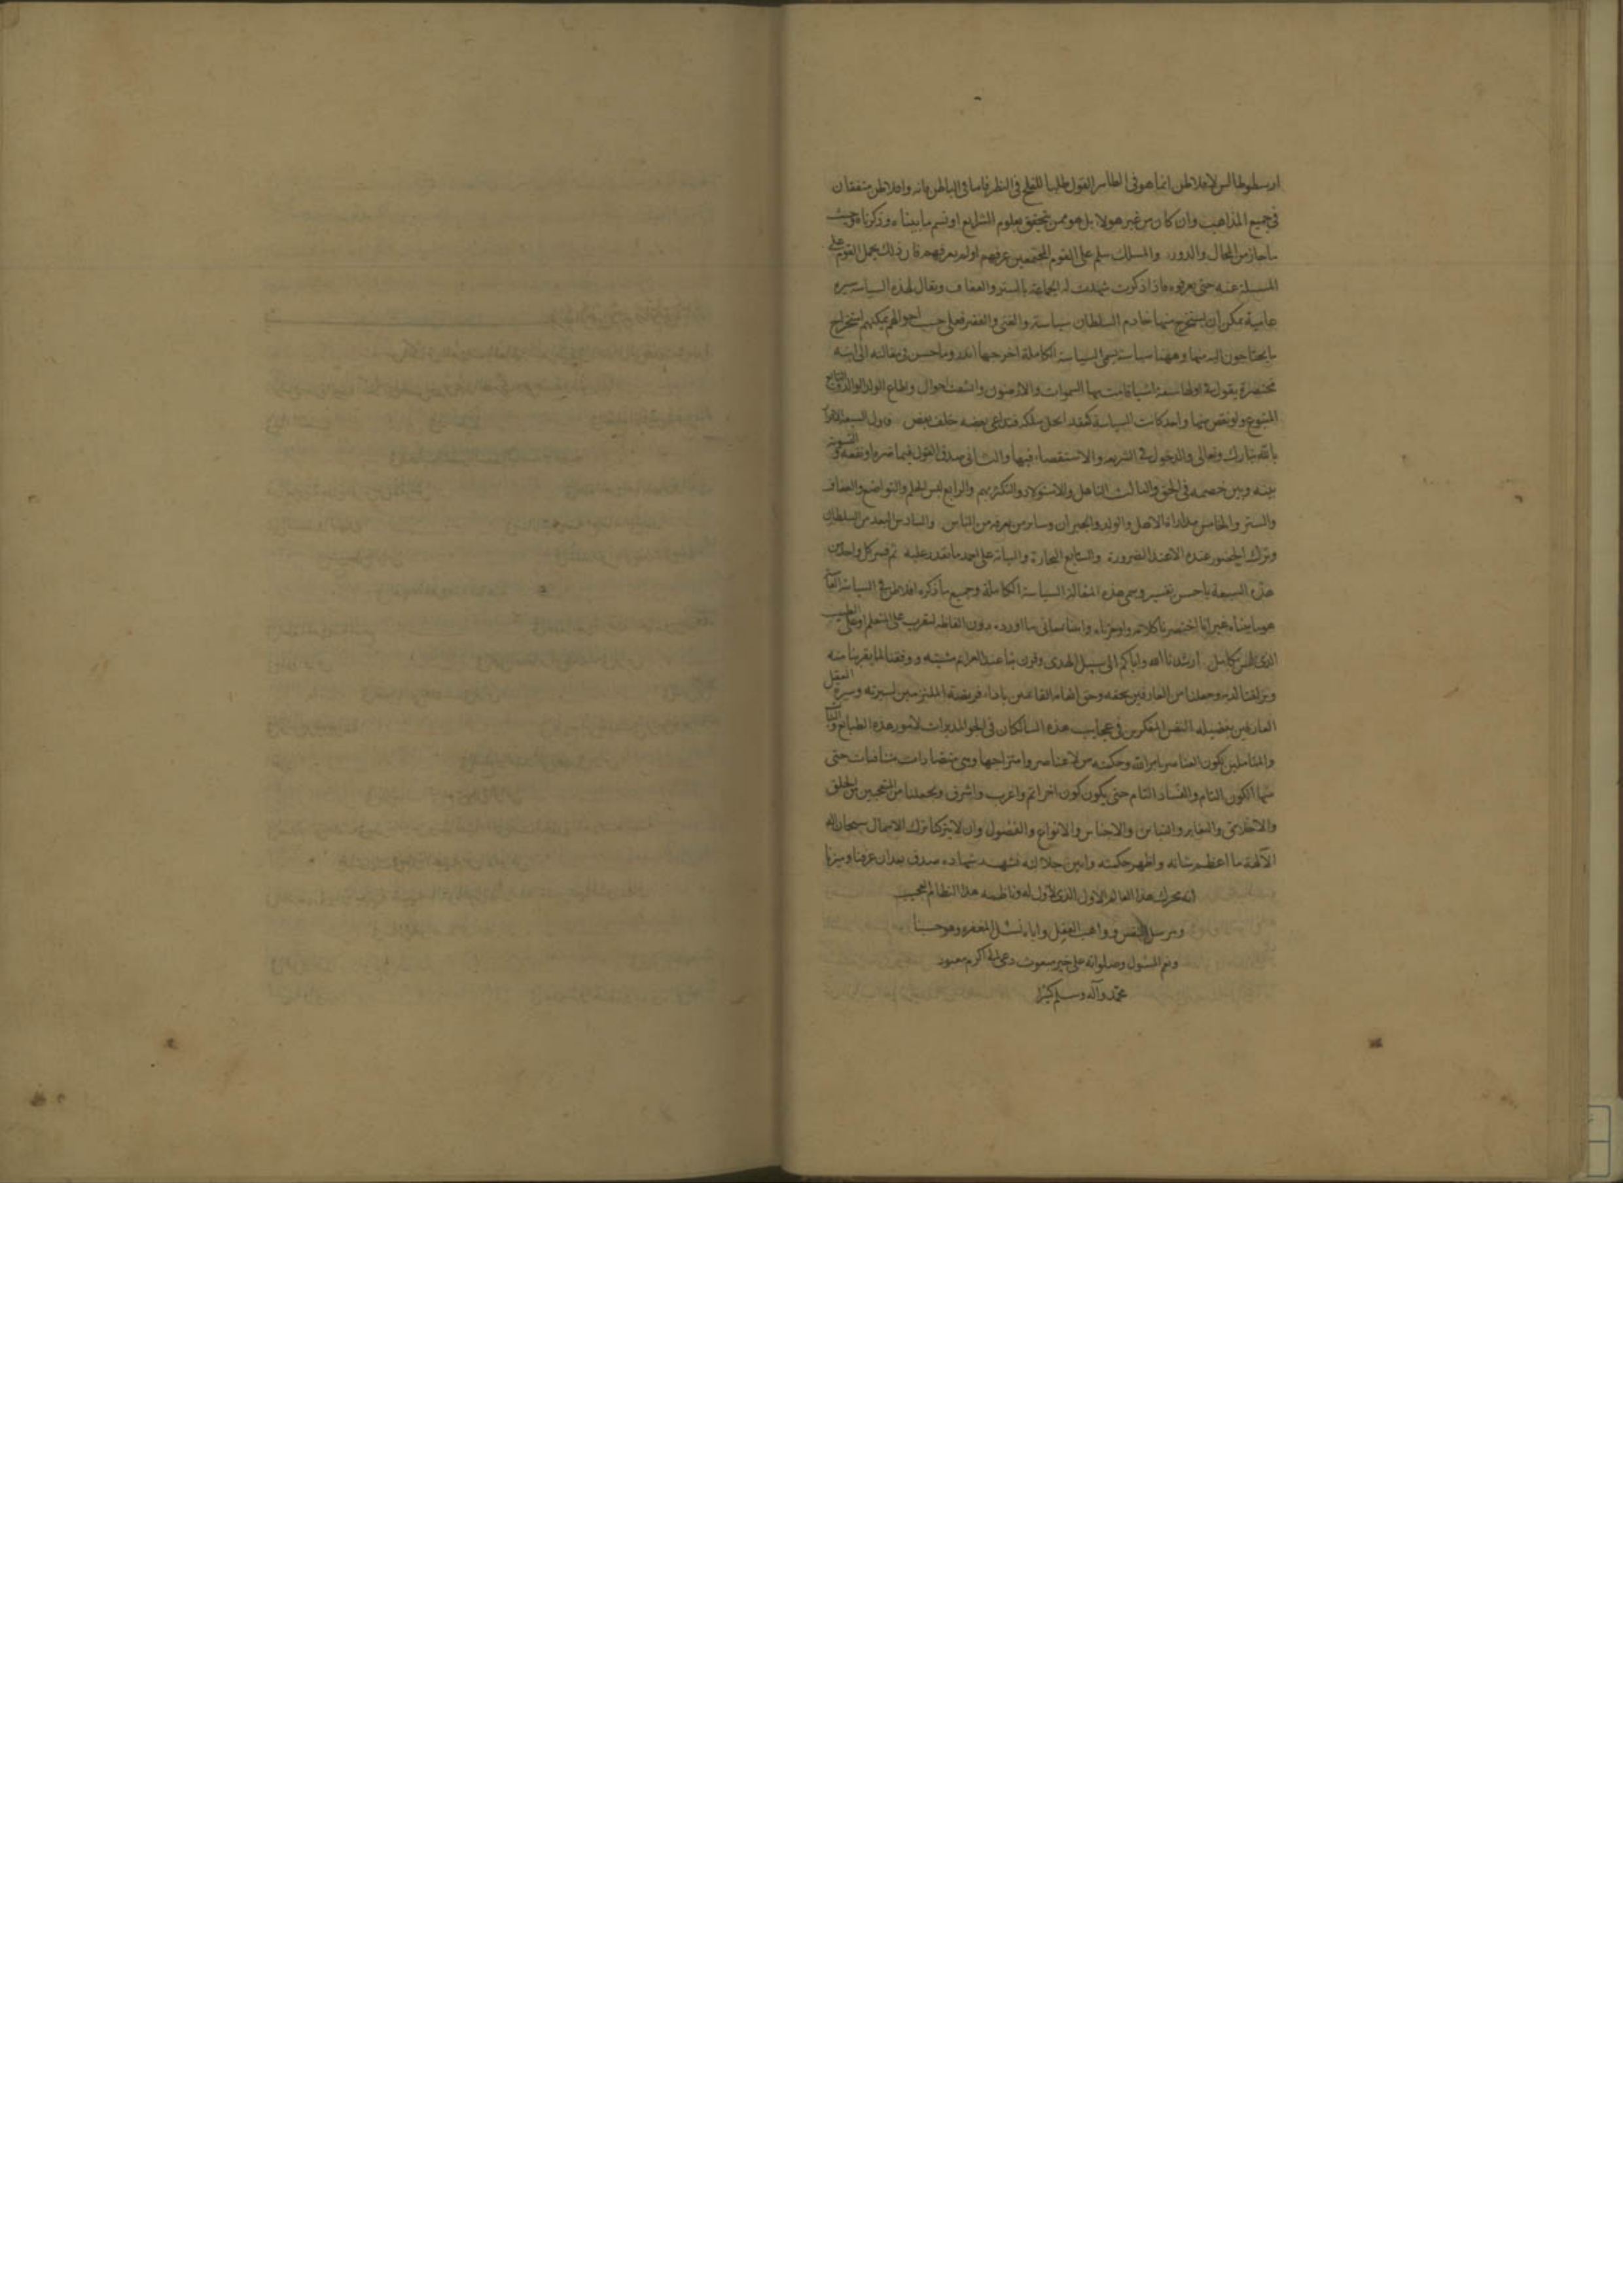 ارسطوطاليس لافلاطن انما هو فى الظاهر القول طلبا للفلج فى النظر فاما فى الباطن فانه وافلاطن متفقان
فى جميع المذاهب وان كان من غير هولا بل هو ممن تحقق بعلوم الشرايع او تسم ما بيناه وذكرناه
ما جاز من المحال والدور والمسلك سلم على القوم المجتمعين عرفهم اولم يعرفهم فان ذلك يحمل القوم على
المسئلة عنه حتى يعرفوه فاذا ذكرت شهدت له الجماعة بالستر والعفاف ويقال لهذه السياسة سيرة
عامية يمكن ان يستخرج منها خادم السلطان سياسته والغنى والفقير فعلى حسب احوالهم يمكنهم استخراج
ما يحتاجون اليه منها وههنا سياسة يسمى السياسة الكاملة اخرجها اندروماخس فى مقالته الى ابنه
مختصرة يقول فى اولها سبعة اشيا قامت بها السموات والارضون واتسقت احوال واطاع الولد الوالد والتابع
المتبوع ولو نقص منها واحد كانت السياسة كعقد انحل سلكه فتداعى بعضه خلف بعض فاول السبعة الاقرار
بالله تبارك وتعالى والدخول فى الشريعة والاستقصاء فيها والثانى صدق القول فيما ضره او نفعه والتسوية
بينه وبين خصمه فى الحق والثالث التاهل والاستيلاد والتكثر بهم والرابع لبس الحلم والتواضع والعفاف
والستر والخامس مداراة الاهل والولد والجيران وساير من يعرفه من الناس والسادس البعد من السلطان
وترك الحضور عنده الا عند الضرورة والسابع التجارة والنيابة على احمد ما تقدر عليه ثم فسر كل واحد من
هذه السبعة باحسن تفسير ويسمى هذه المقالة السياسة الكاملة وجميع ما ذكره افلاطن فى السياسة العامية
هو ما بيناه غير انا اختصرنا كلامه واوجزناه واتينا بمعانى ما اورده دون الفاظه لتقرب على المتعلم او على الطبيب
الذى ليس بكامل ارشدنا الله واياكم الى سبيل الهدى وقرن بنا عند العزايم مشيته ووفقنا لما يقربنا منه
ويزلفنا لديه وجعلنا من العارفين بحقه وحق انعامه القائمين باداء فريضته الملتزمين لسيرته وسيرة العقل
العارفين بفضيلة النفس المفكرين فى عجايب هذه السالكان فى الجو المدبرات لامور هذه الطبايع
والمتاملين كون العناصر بامر الله وحكمته من لا عناصر وامتزاجها وهى متضادات متنافيات حتى
منها الكون التام والفساد التام حتى يكون كون اخر اتم واغرب واشرق ويجعلنا من المتعجبين من الخلق
والاخلاق والتغاير والتباين والاجناس والانواع والفصول وان لا يتركنا ترك الاهمال سبحان اله
الآلهة ما اعظم شانه واظهر حكمته وابين جلالته نشهد شهادة صدق بعد ان عرفنا وميزنا
انه محرك هذا العالم الاول الذى لا اول له وناظمه هذا النظام العجيب
ومرسل النفس وواهب العقل واياه نسئل المغفرة وهو حسبنا
ونعم المسئول وصلواته على خير مبعوث دعى الى اكرم معبود
محمد وآله وسلم كثيرا